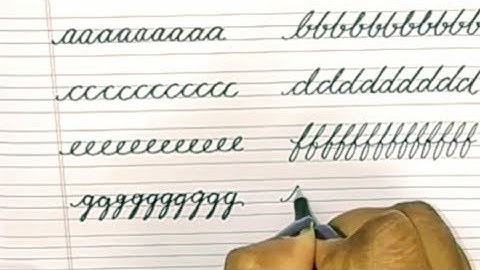 aaaaaaaaaa bbbbbbbbbbbb
ccccccccccc dddddddddd
eeeeeeeeeeee fffffffffffff
gggggggggg